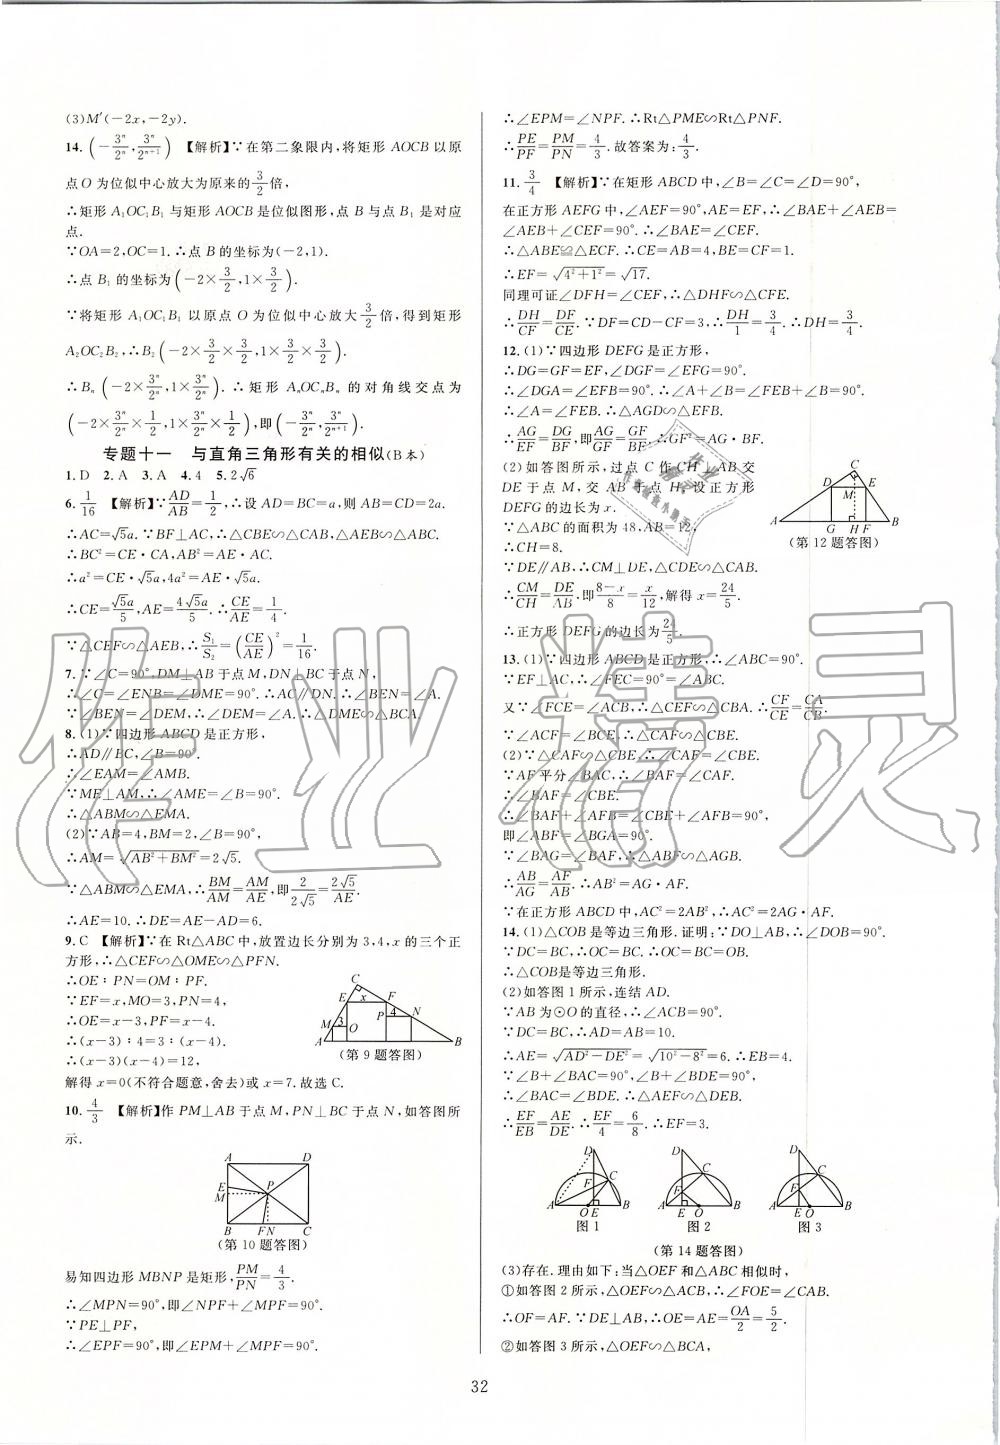 (3)M′(－2x,－2y).
14. (－3ⁿ/2ⁿ, 3ⁿ/2ⁿ⁺¹) 【解析】∵在第二象限内,将矩形 AOCB 以原
点 O 为位似中心放大为原来的 3/2 倍,
∴矩形 A₁OC₁B₁ 与矩形 AOCB 是位似图形,点 B 与点 B₁ 是对应
点.
∵OA=2,OC=1.∴点 B 的坐标为(－2,1).
∴点 B₁ 的坐标为(－2×3/2,1×3/2).
∵将矩形 A₁OC₁B₁ 以原点 O 为位似中心放大 3/2 倍,得到矩形
A₂OC₂B₂,∴B₂(－2×3/2×3/2,1×3/2×3/2).
∴Bₙ(－2×3ⁿ/2ⁿ,1×3ⁿ/2ⁿ).∴矩形 AₙOCₙBₙ 的对角线交点为
(－2×3ⁿ/2ⁿ×1/2,1×3ⁿ/2ⁿ×1/2),即(－3ⁿ/2ⁿ, 3ⁿ/2ⁿ⁺¹).
专题十一 与直角三角形有关的相似(B本)
1. D 2. A 3. A 4. 4 5. 2√6
6. 1/16 【解析】∵AD/AB=1/2,∴设 AD=BC=a,则 AB=CD=2a.
∴AC=√5a.∵BF⊥AC,∴△CBE∽△CAB,△AEB∽△ABC.
∴BC²=CE·CA,AB²=AE·AC.
∴a²=CE·√5a,4a²=AE·√5a.
∴CE=√5a/5,AE=4√5a/5.∴CE/AE=1/4.
∵△CEF∽△AEB,∴S₁/S₂=(CE/AE)²=1/16.
7. ∵∠C=90°,DM⊥AB 于点 M,DN⊥BC 于点 N,
∴∠C=∠ENB=∠DME=90°.∴AC∥DN.∴∠BEN=∠A.
∵∠BEN=∠DEM,∴∠DEM=∠A.∴△DME∽△BCA.
8. (1)∵四边形 ABCD 是正方形,
∴AD∥BC,∠B=90°.
∴∠EAM=∠AMB.
∵ME⊥AM,∴∠AME=∠B=90°.
∴△ABM∽△EMA.
(2)∵AB=4,BM=2,∠B=90°,
∴AM=√(AB²+BM²)=2√5.
∵△ABM∽△EMA,∴BM/AM=AM/AE,即2/2√5=2√5/AE.
∴AE=10.∴DE=AE－AD=6.
9. C 【解析】∵在 Rt△ABC 中,放置边长分别为 3,4,x 的三个正
方形,∴△CEF∽△OME∽△PFN.
∴OE∶PN=OM∶PF.
∵EF=x,MO=3,PN=4,
∴OE=x－3,PF=x－4.
∴(x－3)∶4=3∶(x－4).
∴(x－3)(x－4)=12,
解得 x=0(不符合题意,舍去)或 x=7.故选 C.
C
E x F
M 3 O P 4 N
A B
(第 9 题答图)
10. 4/3 【解析】作 PM⊥AB 于点 M,PN⊥BC 于点 N,如答图所
示.
A D
E
M P
B FN C
(第 10 题答图)
易知四边形 MBNP 是矩形,PM/PN=4/3.
∴∠MPN=90°,即∠NPF+∠MPF=90°.
∵PE⊥PF,
∴∠EPF=90°,即∠EPM+∠MPF=90°,
∴∠EPM=∠NPF.∴Rt△PME∽Rt△PNF.
∴PE/PF=PM/PN=4/3.故答案为:4/3.
11. 3/4 【解析】∵在矩形 ABCD 中,∠B=∠C=∠D=90°,
在正方形 AEFG 中,∠AEF=90°,AE=EF,∴∠BAE+∠AEB=
∠AEB+∠CEF=90°.∴∠BAE=∠CEF.
∴△ABE≌△ECF.∴CE=AB=4,BE=CF=1.
∴EF=√(4²+1²)=√17.
同理可证∠DFH=∠CEF,∴△DHF∽△CFE.
∴DH/CF=DF/CE.∵DF=CD－CF=3,∴DH/1=3/4.∴DH=3/4.
12. (1)∵四边形 DEFG 是正方形,
∴DG=GF=EF,∠DGF=∠EFG=90°.
∴∠DGA=∠EFB=90°.∴∠A+∠B=∠FEB+∠B=90°.
∴∠A=∠FEB.∴△AGD∽△EFB.
∴AG/EF=DG/BF,即AG/GF=GF/BF.∴GF²=AG·BF.
(2)如答图所示,过点 C 作 CH⊥AB 交
DE 于点 M,交 AB 于点 H,设正方形
DEFG 的边长为 x.
∵△ABC 的面积为 48,AB=12,
∴CH=8.
∵DE∥AB,∴CM⊥DE,△CDE∽△CAB.
∴CM/CH=DE/AB,即(8－x)/8=x/12,解得 x=24/5.
∴正方形 DEFG 的边长为24/5.
C
D M E
A G H F B
(第 12 题答图)
13. (1)∵四边形 ABCD 是正方形,∴∠ABC=90°.
∵EF⊥AC,∴∠FEC=90°=∠ABC.
又∵∠FCE=∠ACB,∴△CEF∽△CBA.∴CF/CE=CA/CB.
∵∠ACF=∠BCE,∴△CAF∽△CBE.
(2)∵△CAF∽△CBE,∴∠CAF=∠CBE.
∵AF 平分∠BAC,∴∠BAF=∠CAF.
∴∠BAF=∠CBE.
∴∠BAF+∠AFB=∠CBE+∠AFB=90°,
即∠ABF=∠BGA=90°.
∵∠BAG=∠BAF,∴△ABF∽△AGB.
∴AB/AG=AF/AB.∴AB²=AG·AF.
∵在正方形 ABCD 中,AC²=2AB²,∴AC²=2AG·AF.
14. (1)△COB 是等边三角形.证明:∵DO⊥AB,∴∠DOB=90°.
∵DC=BC,∴OC=BC.∴OC=OB=BC.
∴△COB是等边三角形.
(2)如答图 1 所示,连结 AD.
∵AB 为⊙O 的直径,∴∠ACB=90°.
∵DC=BC,∴AD=AB=10.
∴AE=√(AD²－DE²)=√(10²－8²)=6.∴EB=4.
∵∠B+∠BAC=90°,∠B+∠BDE=90°,
∴∠BAC=∠BDE.∴△AEF∽△DEB.
∴EF/EB=AE/DE.∴EF/4=6/8.∴EF=3.
D
F C
A O E B
图 1
D
F C
A E O B
图 2
D
F C
A E O B
图 3
(第 14 题答图)
(3)存在.理由如下:当△OEF 和△ABC 相似时,
①如答图 2 所示,△OEF∽△ACB,∴∠FOE=∠CAB.
∴OF=AF.∵DE⊥AB,∴OE=AE=OA/2=5/2.
②如答图 3 所示,△OEF∽△BCA,
32
作业精灵